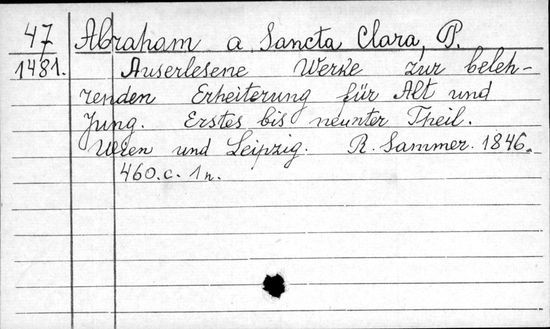 47 Abraham a Sancta Clara, P.
1481. Auserlesene Werke zur beleh-
renden Erheiterung für Alt und
Jung. Erstes bis neunter Theil.
Wien und Leipzig. R. Sammer. 1846.
460.c. 1n.